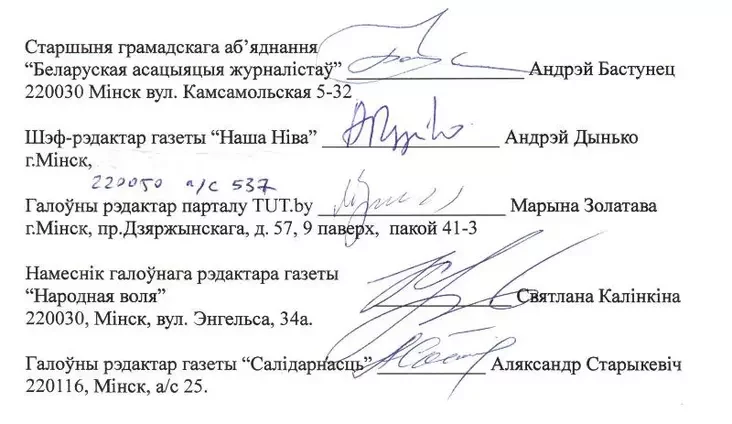 Старшыня грамадскага аб’яднання
“Беларуская асацыяцыя журналістаў” ____________________ Андрэй Бастунец
220030 Мінск вул. Камсамольская 5-32
Шэф-рэдактар газеты “Наша Ніва” ____________________ Андрэй Дынько
г.Мінск,
220050 а/с 537
Галоўны рэдактар парталу TUT.by ____________________ Марына Золатава
г.Мінск, пр.Дзяржынскага, д. 57, 9 паверх, пакой 41-3
Намеснік галоўнага рэдактара газеты
“Народная воля” ____________________ Святлана Калінкіна
220030, Мінск, вул. Энгельса, 34а.
Галоўны рэдактар газеты “Салідарнасць” ____________ Аляксандр Старыкевіч
220116, Мінск, а/с 25.